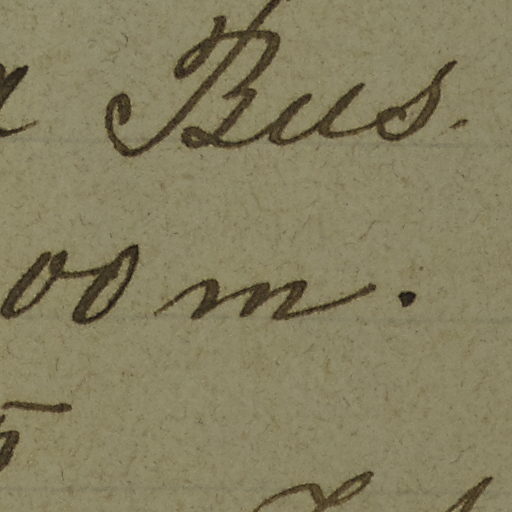 Bus.
00 m.
5